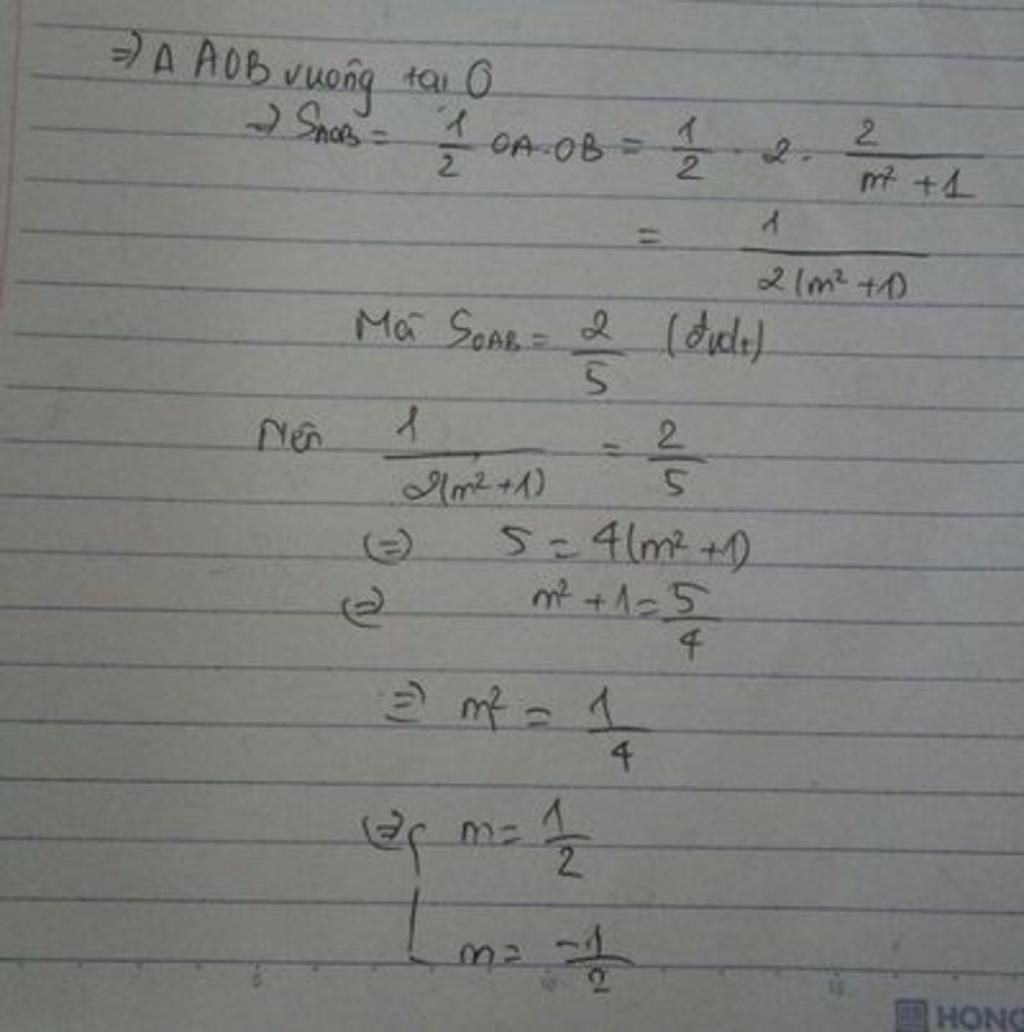 => Δ AOB vuông tại O
=> S_AOB = 1/2 OA.OB = 1/2 . 2 . 2/(m² + 1)
= 1/(2(m² + 1))
Mà S_OAB = 2/5 (đvdt)
Nên 1/(2(m² + 1)) = 2/5
(=) 5 = 4(m² + 1)
(=) m² + 1 = 5/4
=> m² = 1/4
(=) [ m = 1/2
m = -1/2
6 10 15
HONG